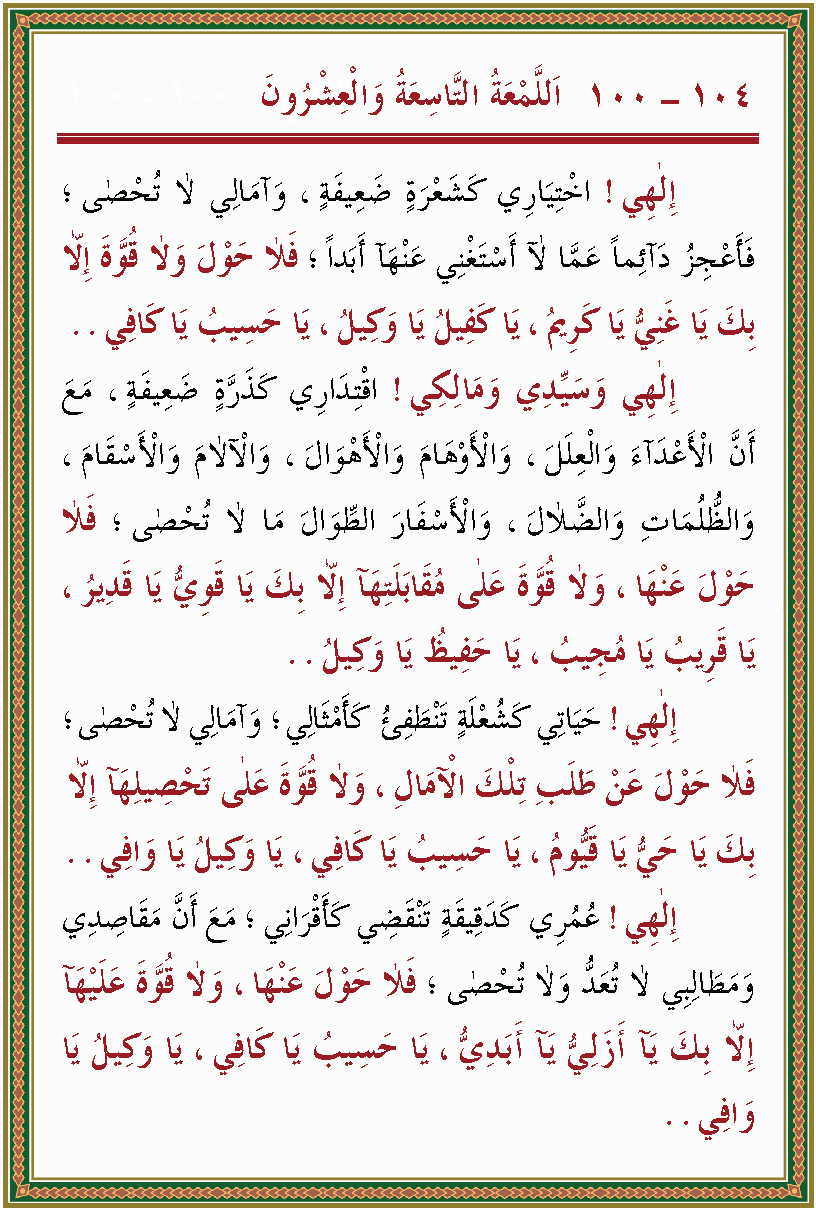 ١٠٤ – ١٠٠ اَللَّمْعَةُ التَّاسِعَةُ وَالْعِشْرُونَ
إِلٰهِي ! اخْتِيَارِي كَشَعْرَةٍ ضَعِيفَةٍ ، وَآمَالِي لاٰ تُحْصٰى ؛
فَأَعْجِزُ دَآئِماً عَمَّا لاٰ أَسْتَغْنِي عَنْهَآ أَبَداً ؛ فَلاٰ حَوْلَ وَلاٰ قُوَّةَ إِلاّٰ
بِكَ يَا غَنِيُّ يَا كَرِيمُ ، يَا كَفِيلُ يَا وَكِيلُ ، يَا حَسِيبُ يَا كَافِي . .
إِلٰهِي وَسَيِّدِي وَمَالِكِي ! اقْتِدَارِي كَذَرَّةٍ ضَعِيفَةٍ ، مَعَ
أَنَّ الْأَعْدَآءَ وَالْعِلَلَ ، وَالْأَوْهَامَ وَالْأَهْوَالَ ، وَالْآلاٰمَ وَالْأَسْقَامَ ،
وَالظُّلُمَاتِ وَالضَّلاٰلَ ، وَالْأَسْفَارَ الطِّوَالَ مَا لاٰ تُحْصٰى ؛ فَلاٰ
حَوْلَ عَنْهَا ، وَلاٰ قُوَّةَ عَلٰى مُقَابَلَتِهَآ إِلاّٰ بِكَ يَا قَوِيُّ يَا قَدِيرُ ،
يَا قَرِيبُ يَا مُجِيبُ ، يَا حَفِيظُ يَا وَكِيلُ . .
إِلٰهِي ! حَيَاتِي كَشُعْلَةٍ تَنْطَفِئُ كَأَمْثَالِي ؛ وَآمَالِي لاٰ تُحْصٰى ؛
فَلاٰ حَوْلَ عَنْ طَلَبِ تِلْكَ الْآمَالِ ، وَلاٰ قُوَّةَ عَلٰى تَحْصِيلِهَآ إِلاّٰ
بِكَ يَا حَيُّ يَا قَيُّومُ ، يَا حَسِيبُ يَا كَافِي ، يَا وَكِيلُ يَا وَافِي . .
إِلٰهِي ! عُمُرِي كَدَقِيقَةٍ تَنْقَضِي كَأَقْرَانِي ؛ مَعَ أَنَّ مَقَاصِدِي
وَمَطَالِبِي لاٰ تُعَدُّ وَلاٰ تُحْصٰى ؛ فَلاٰ حَوْلَ عَنْهَا ، وَلاٰ قُوَّةَ عَلَيْهَآ
إِلاّٰ بِكَ يَآ أَزَلِيُّ يَآ أَبَدِيُّ ، يَا حَسِيبُ يَا كَافِي ، يَا وَكِيلُ يَا
وَافِي . .